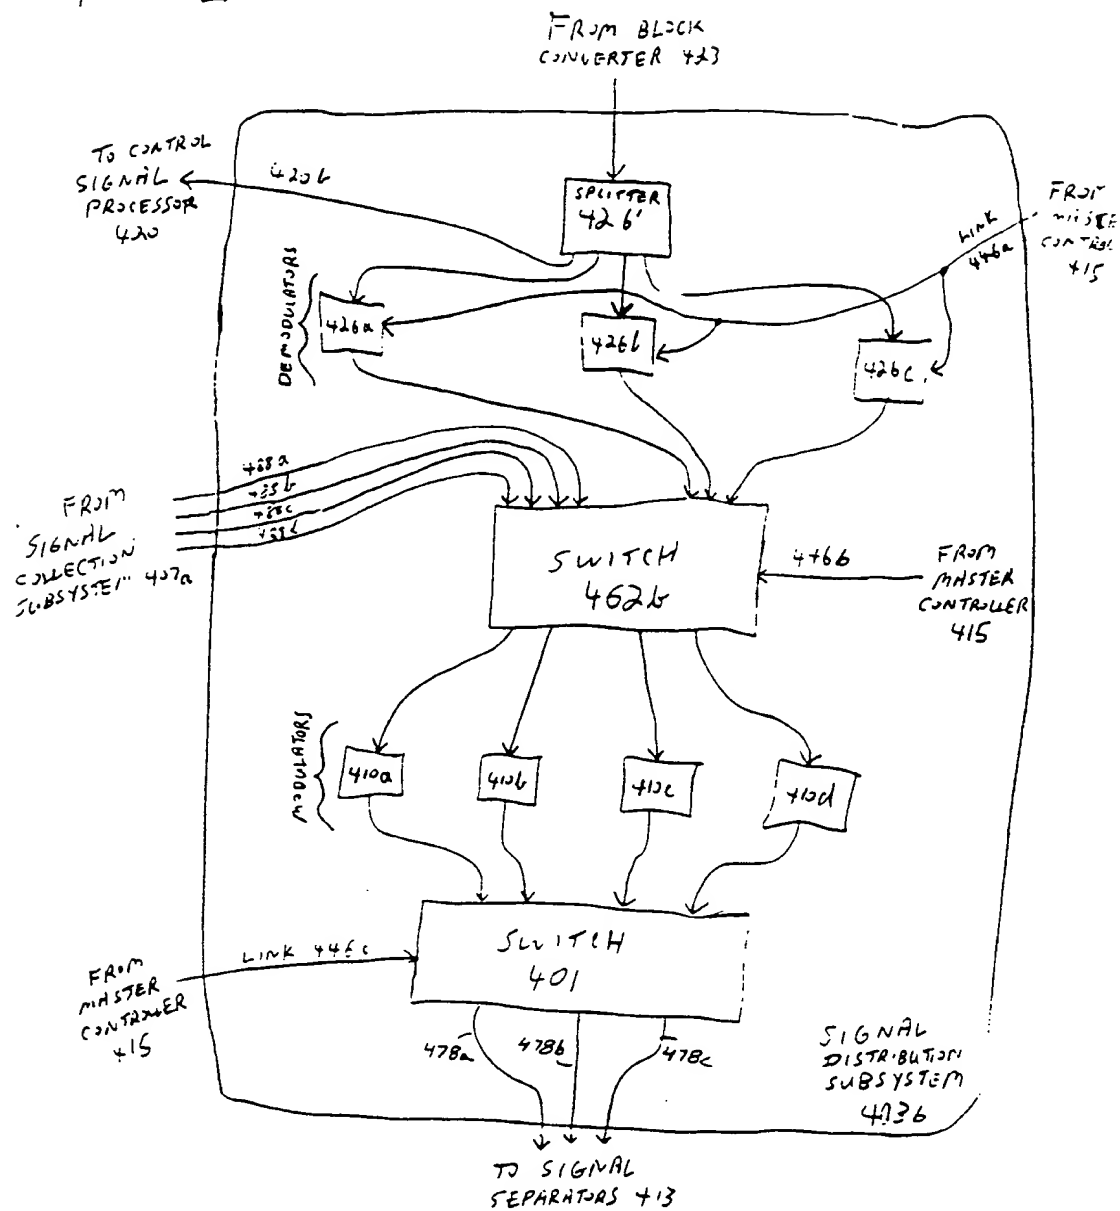 FROM BLOCK
CONVERTER 423
TO CONTROL
SIGNAL
PROCESSOR
420
420b
SPLITTER
426'
FROM
CONTROL
415
LINK
446a
DEMODULATORS
426a
426b
426c
488a
488b
488c
488d
FROM
SIGNAL
COLLECTION
SUBSYSTEM 407a
SWITCH
462b
446b
FROM
MASTER
CONTROLLER
415
MODULATORS
410a
410b
410c
410d
SWITCH
401
LINK 446c
FROM
MASTER
CONTROLLER
415
478a
478b
478c
SIGNAL
DISTRIBUTION
SUBSYSTEM
403b
TO SIGNAL
SEPARATORS 413